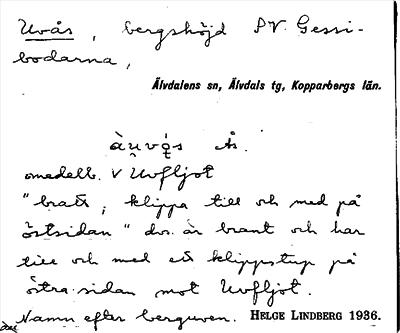 Uvås, bergshöjd SV. Gessi-
bodarna,
Älvdalens sn, Älvdals tg, Kopparbergs län.
Ås.
omedelb. V Uvfljot
"brats, klippa till och med på
östsidan" dvs. är brant och har
till och med ett klippstup på
östra sidan mot Uvfljot.
Namn efter berguven. HELGE LINDBERG 1936.